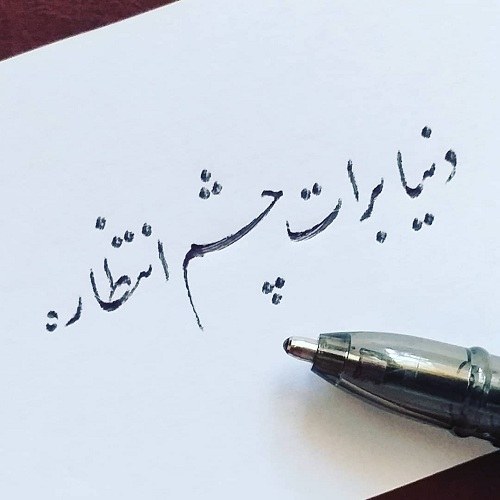 دنیا برات چشم انتظاره